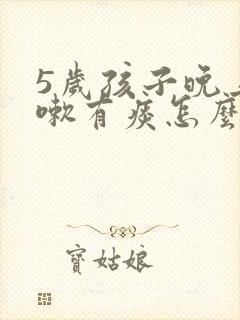 5歲孩子晚
嗽有痰怎麼
寶姑娘